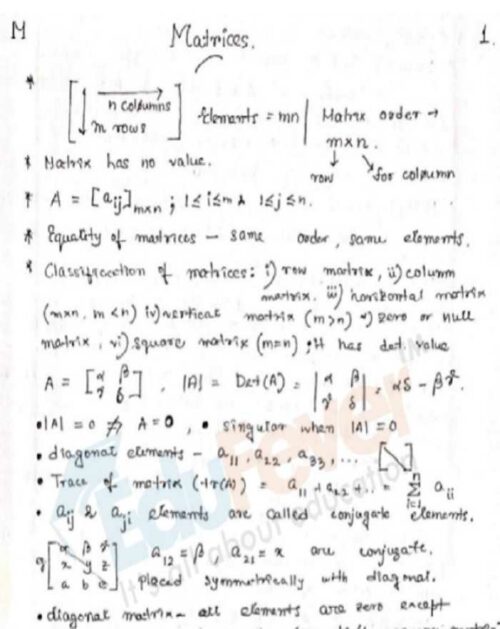 M
Matrices.
1.
* [ n coloumns m rows ] Elements = mn | Matrix order → m×n.
row for coloumn
* Matrix has no value.
* A = [aij]m×n ; 1≤i≤m & 1≤j≤n.
* Equality of matrices – same order, same elements.
* Classification of matrices: i) row matrix, ii) column
matrix. iii) horizontal matrix
(m×n, m<n) iv) vertical matrix (m>n) v) zero or null
matrix, vi) square matrix (m=n) ; it has det. value
A = [α β γ δ] , |A| = Det(A) = |α β γ δ| = αδ - βγ.
• |A| = 0 ⇏ A = 0, • singular when |A| = 0
• diagonal elements – a11, a22, a33, ...
• Trace of matrix (tr(A)) = a11 + a22 ... = Σ i=1 n aii
• aij & aji elements are called conjugate elements.
[α β γ x y z a b c] a12 = β, a21 = x are conjugate.
placed symmetrically with diagonal.
• diagonal matrix – all elements are zero except
EduFever
TM
It's all about education